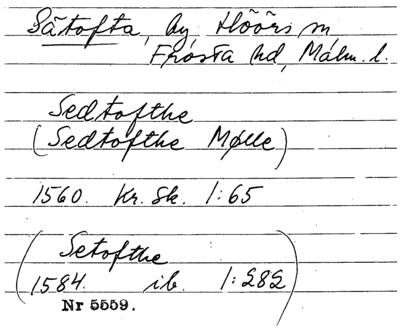 Sätofta, by, Höörs sn,
Frosta hd, Malm. l.
Sedtofthe
(Sedtofthe Mølle)
1560. Kr. Sk. 1:65
(Setofthe
1584. ib. 1:282)
Nr 5559.